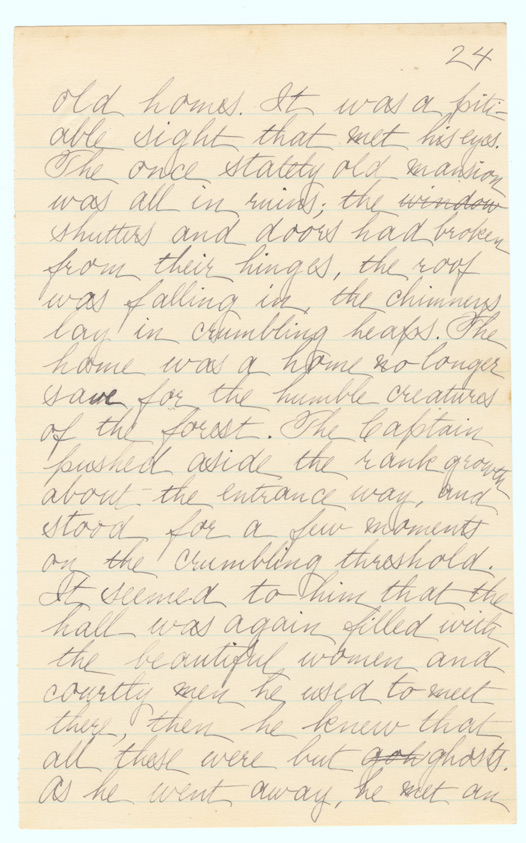 24
old homes. It was a piti-
able sight that met his eyes.
The once stately old mansion
was all in ruins; the window
shutters and doors had broken
from their hinges, the roof
was falling in, the chimneys
lay in crumbling heaps. The
home was a home no longer
save for the humble creatures
of the forest. The Captain
pushed aside the rank growth
about the entrance way, and
stood for a few moments
on the crumbling threshold.
It seemed to him that the
hall was again filled with
the beautiful women and
courtly men he used to meet
there, then he knew that
all these were but goh ghosts.
As he went away, he met an